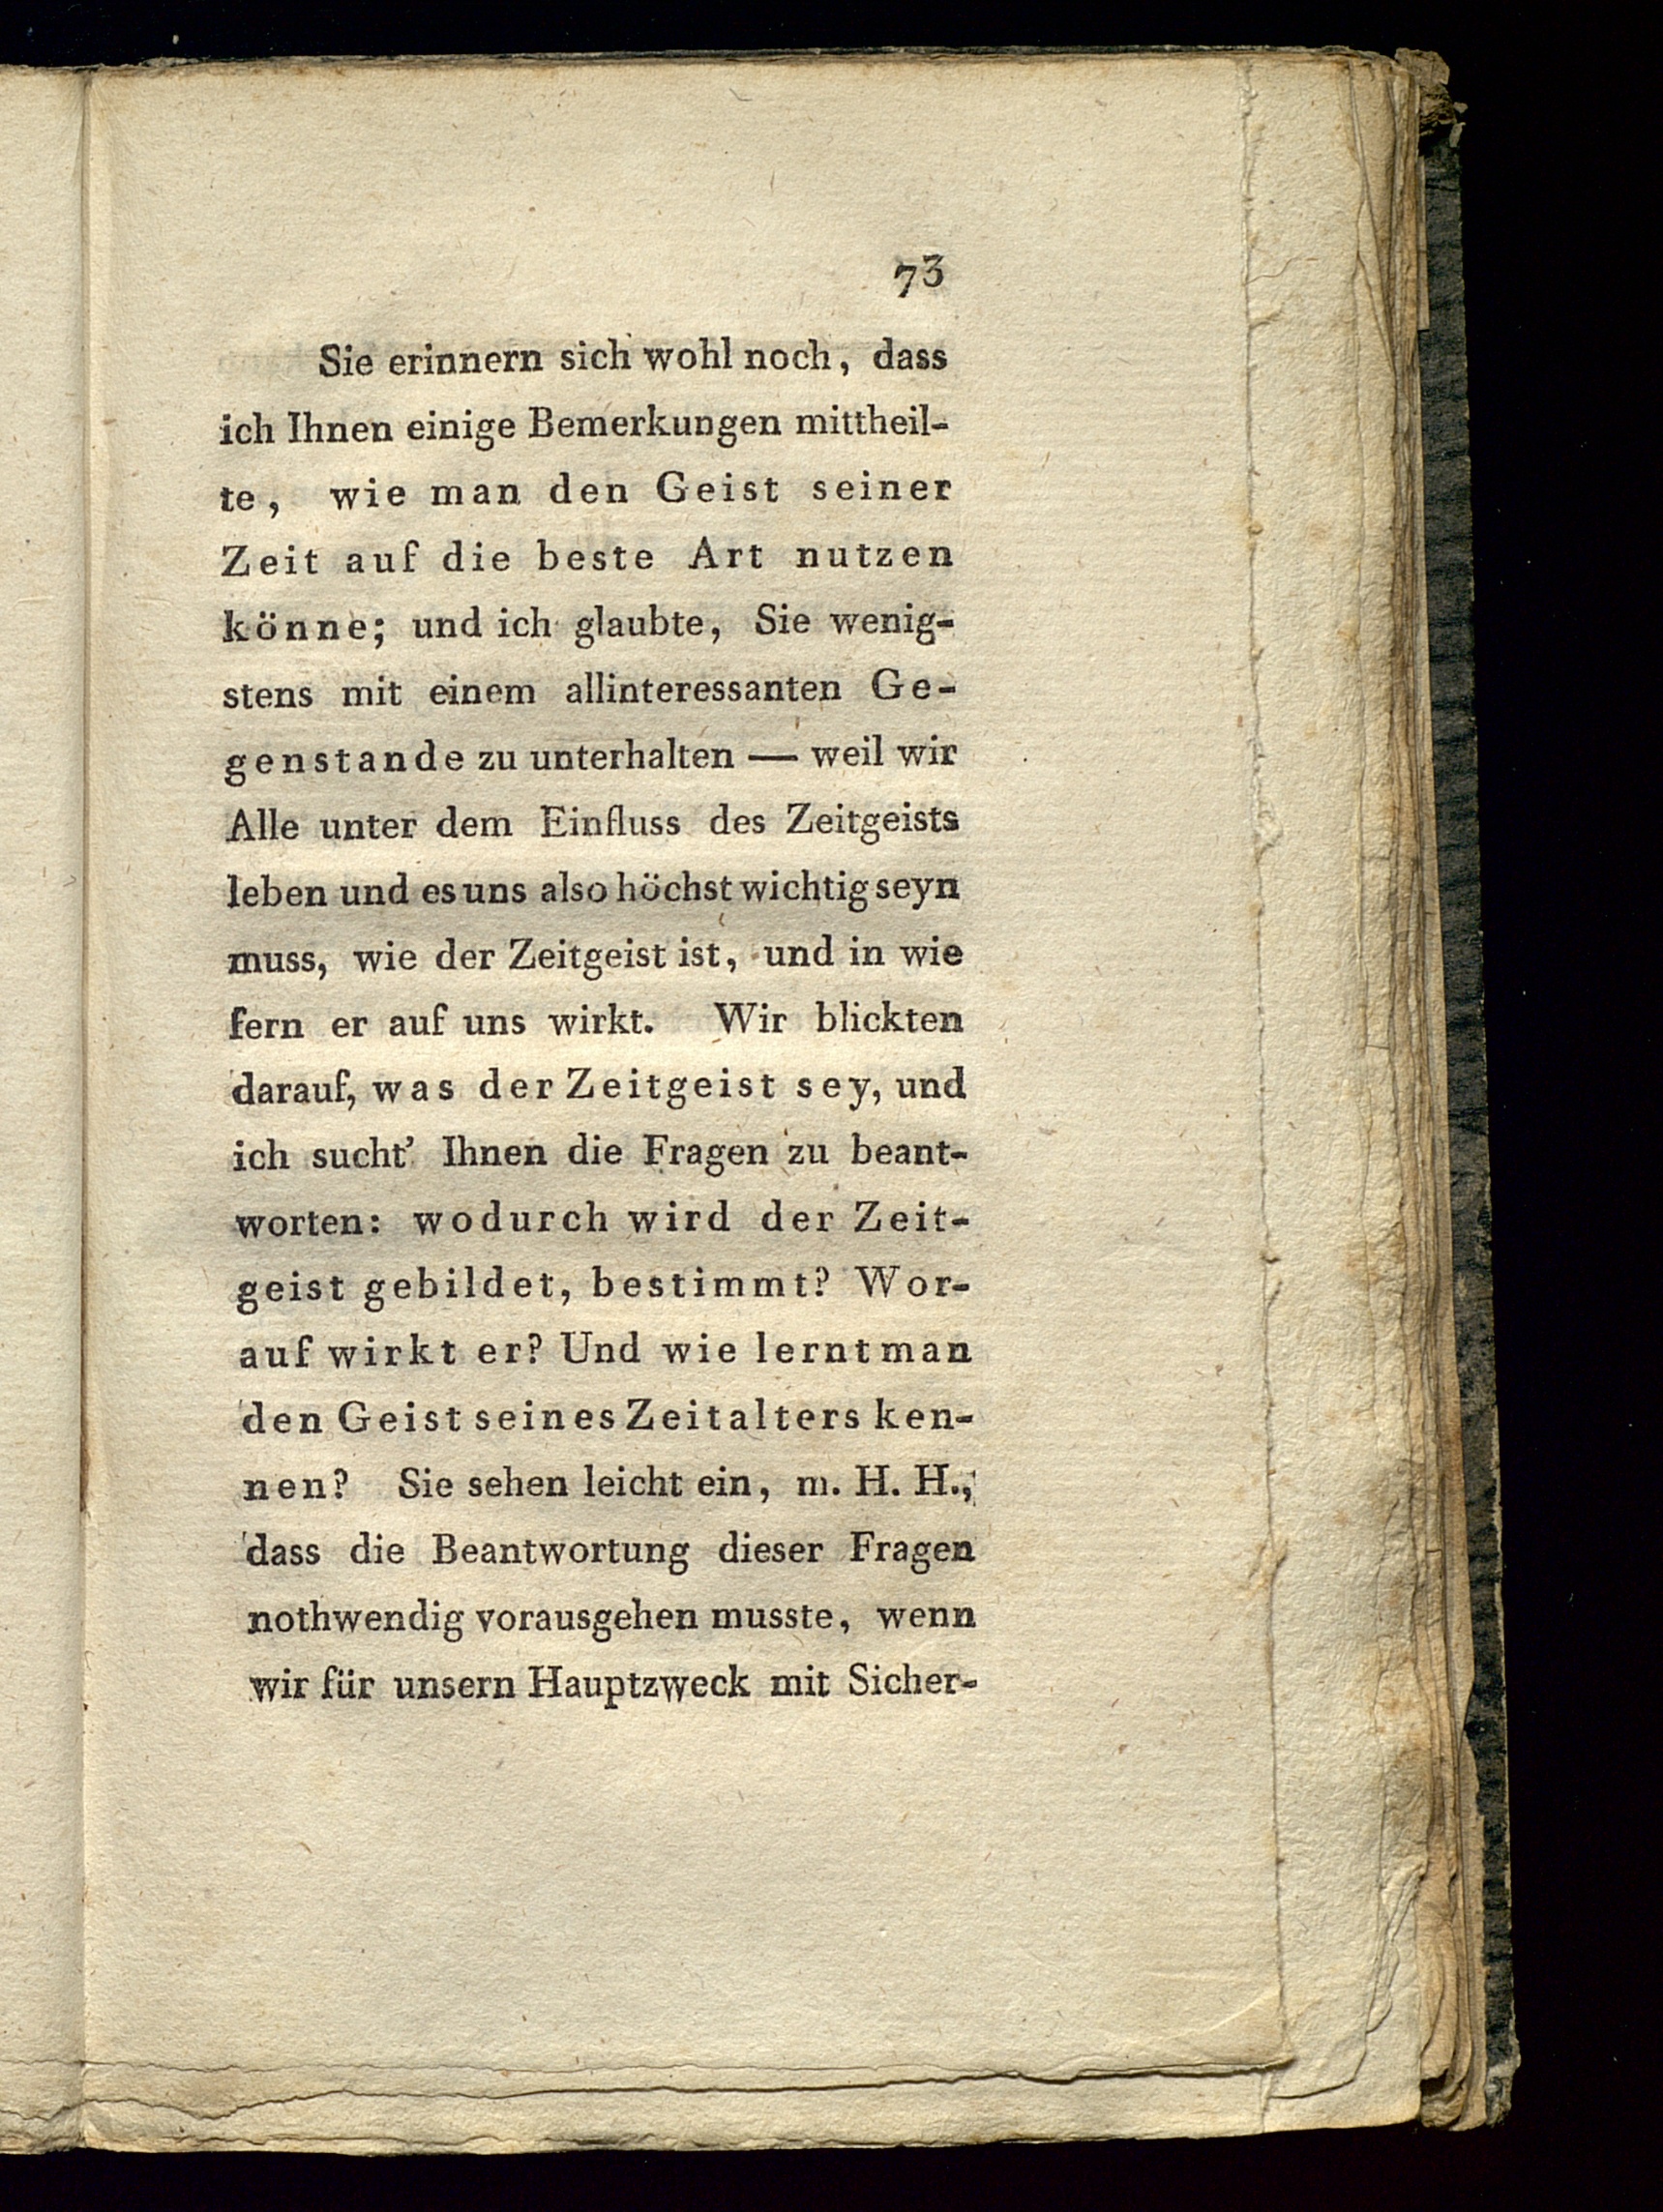 73
Sie erinnern sich wohl noch, dass
ich Ihnen einige Bemerkungen mittheil-
te, wie man den Geist seiner
Zeit auf die beste Art nutzen
könne; und ich glaubte, Sie wenig-
stens mit einem allinteressanten Ge-
genstande zu unterhalten — weil wir
Alle unter dem Einfluss des Zeitgeists
leben und es uns also höchst wichtig seyn
muss, wie der Zeitgeist ist, und in wie
fern er auf uns wirkt. Wir blickten
darauf, was der Zeitgeist sey, und
ich sucht' Ihnen die Fragen zu beant-
worten: wodurch wird der Zeit-
geist gebildet, bestimmt? Wor-
auf wirkt er? Und wie lernt man
den Geist seines Zeitalters ken-
nen? Sie sehen leicht ein, m. H. H.,
dass die Beantwortung dieser Fragen
nothwendig vorausgehen musste, wenn
wir für unsern Hauptzweck mit Sicher-